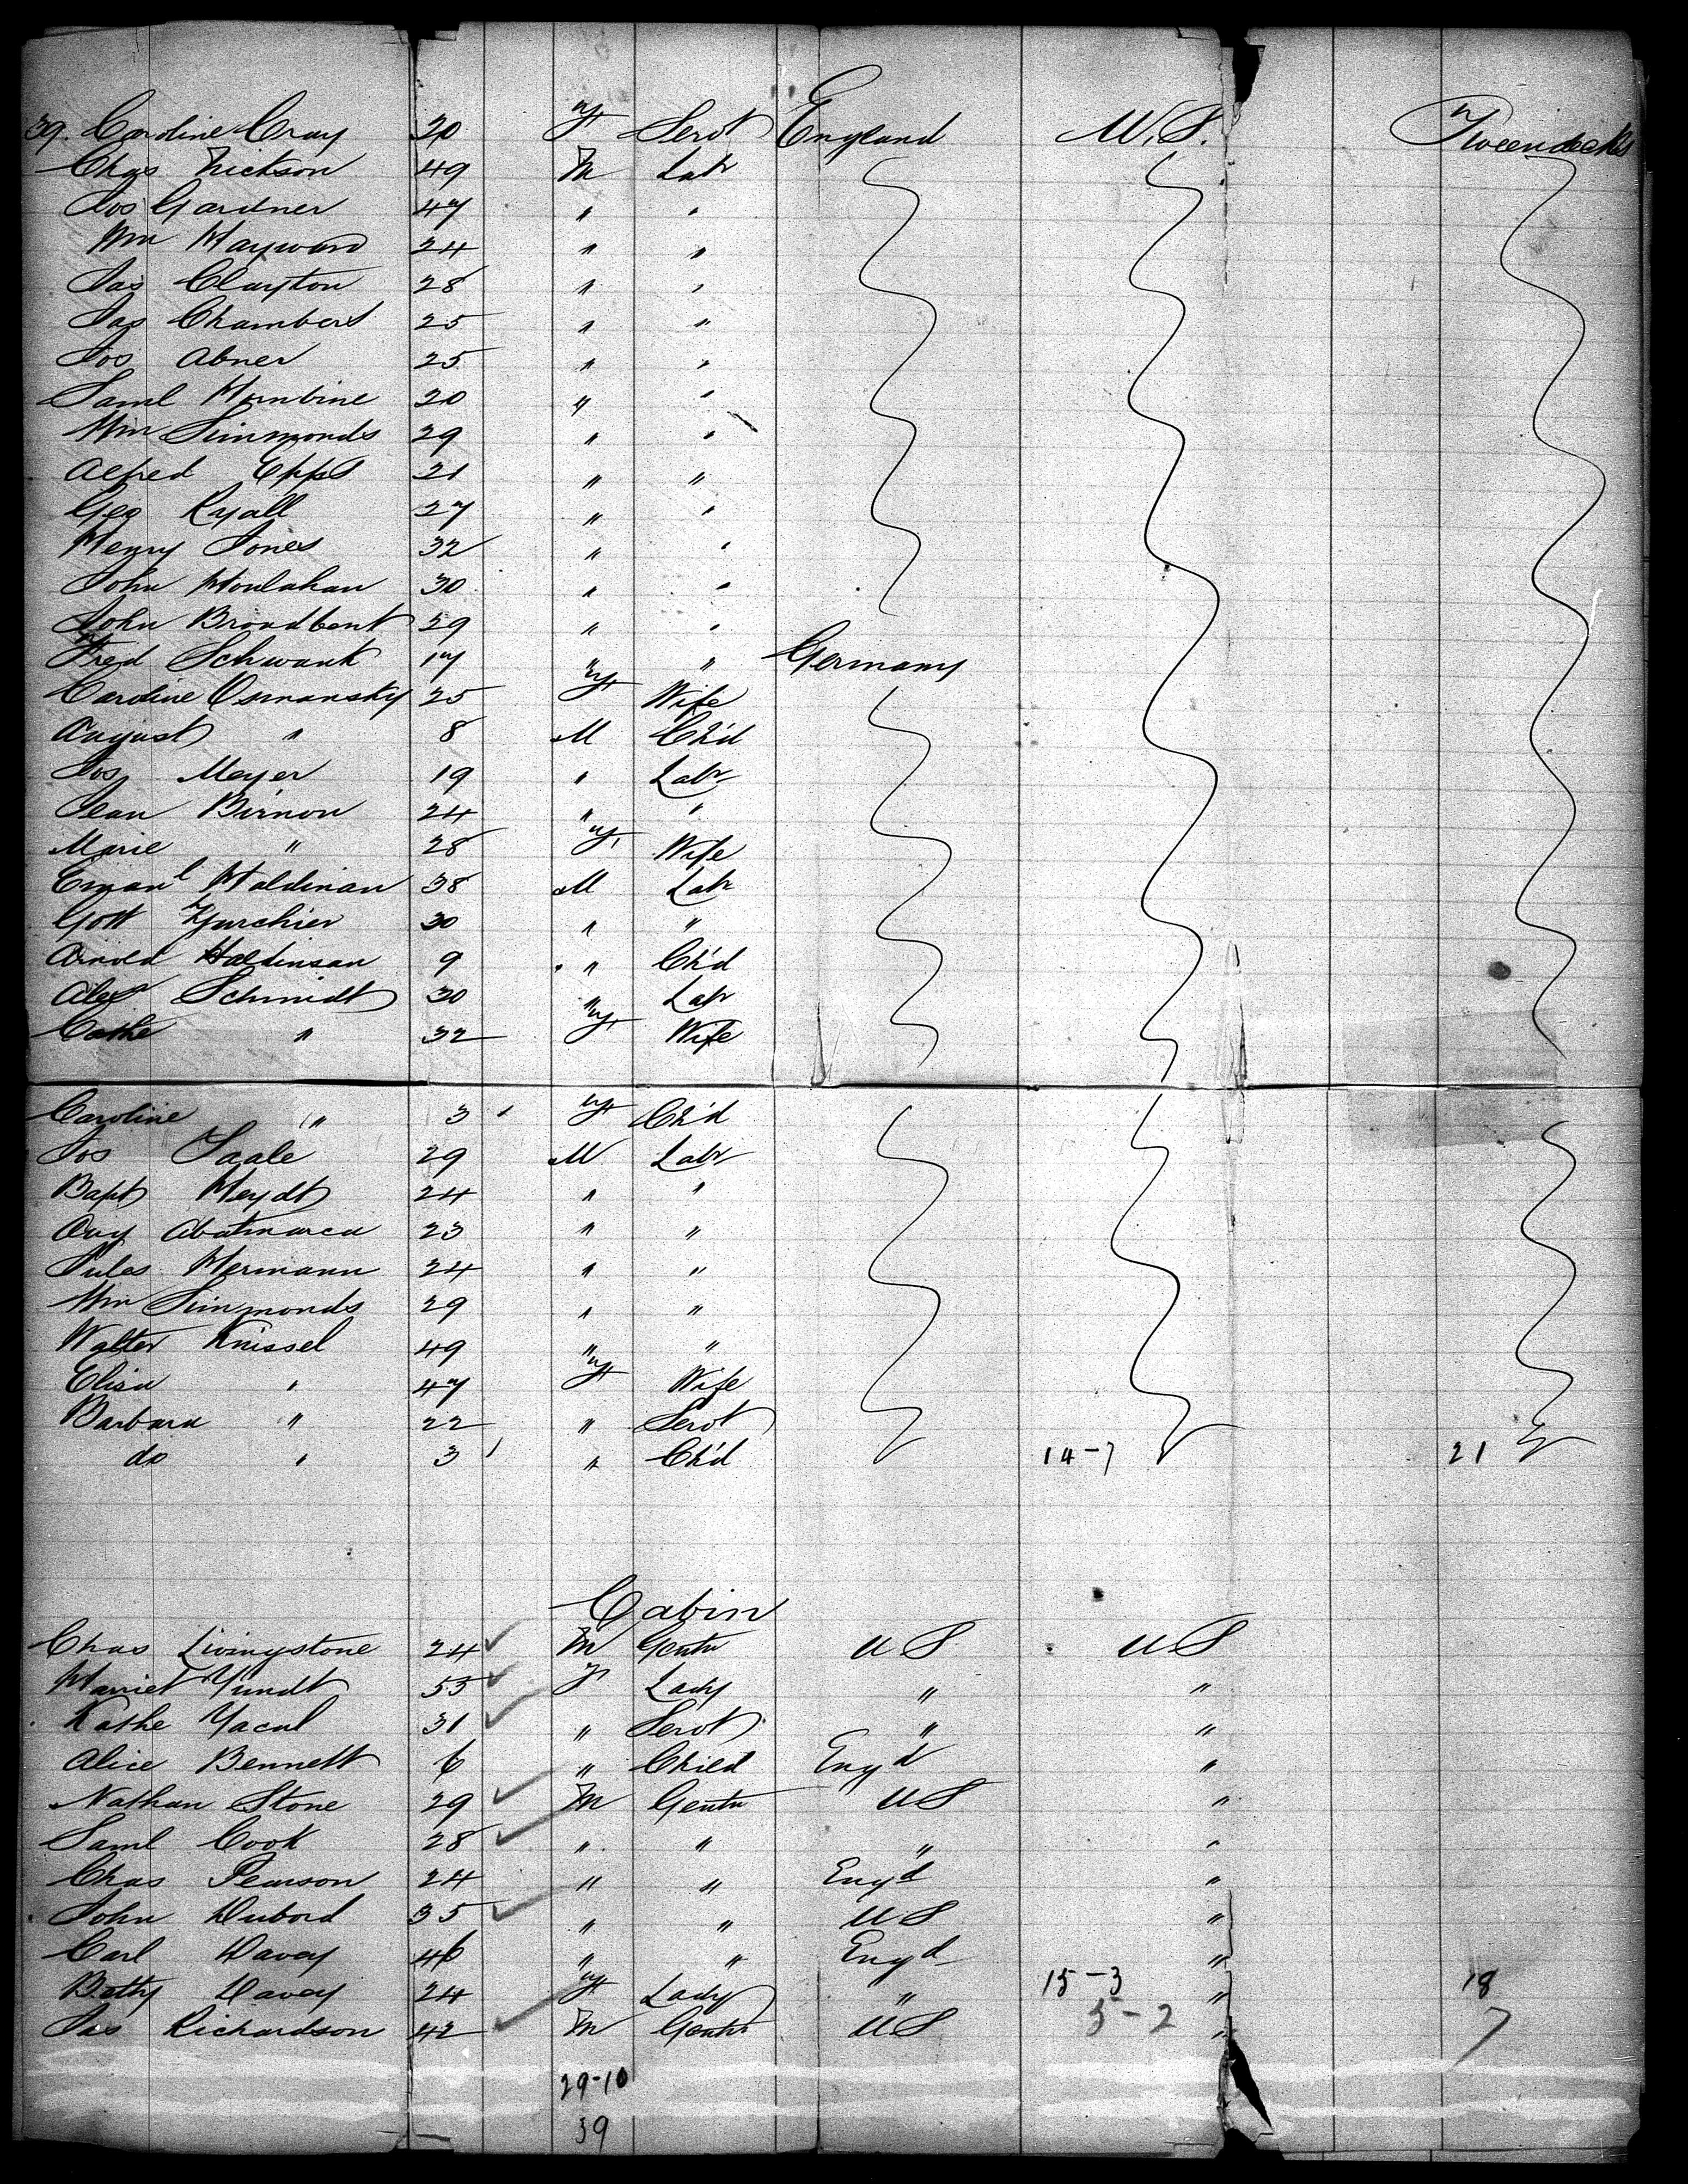 39. Caroline Cray 20 f Servt England U.S. Tweendecks
Chas Nickson 49 M Labr
Jos Gardner 47 " "
Wm Hayward 24 " "
Jas Clayton 28 " "
Jas Chambers 25 " "
Jos Abner 25 " "
Saml Hornbine 20 " "
Wm Simmonds 29 " "
Alfred Epps 21 " "
Geo Ryall 27 " "
Henry Jones 32 " "
John Houlahan 30 " "
John Broadbent 29 " "
Fred Schwank 17 " " Germany
Caroline Osmansky 25 f Wife
August " 8 M Ch'd
Jos Meyer 19 " Labr
Jean Birnon 24 " "
Marie " 28 f Wife
Emanl Haldinan 38 M Labr
Gott Zurchier 30 " "
Arnold Haldinsan 9 " Ch'd
Alexr Schmidt 30 " Labr
Cathe " 32 f Wife
Caroline " 3 f Ch'd
Jos Saale 29 M Labr
Bapt Heydt 24 " "
Aug Abatmarca 23 " "
Jules Hermann 24 " "
Wm Simmonds 29 " "
Walter Knissel 49 " "
Elisa " 47 f Wife
Barbara " 22 " Servt
do " 3 " Ch'd 14-7 21
Cabin
Chas Livingstone 24 M Gentn U S U S
Harriet Yundt 55 f Lady " "
Kathe Yacul 31 " Servt " "
Alice Bennett 6 " Child Eng'd "
Nathan Stone 29 M Gentn U S "
Saml Cook 28 " " " "
Chas Pearson 24 " " Eng'd "
John Dubord 35 " " U S "
Carl Davey 46 " " Eng'd "
Betty Davey 24 f Lady " 15-3 " 18
Jas Richardson 42 M Gentn U S 5-2 " 7
29-10
39